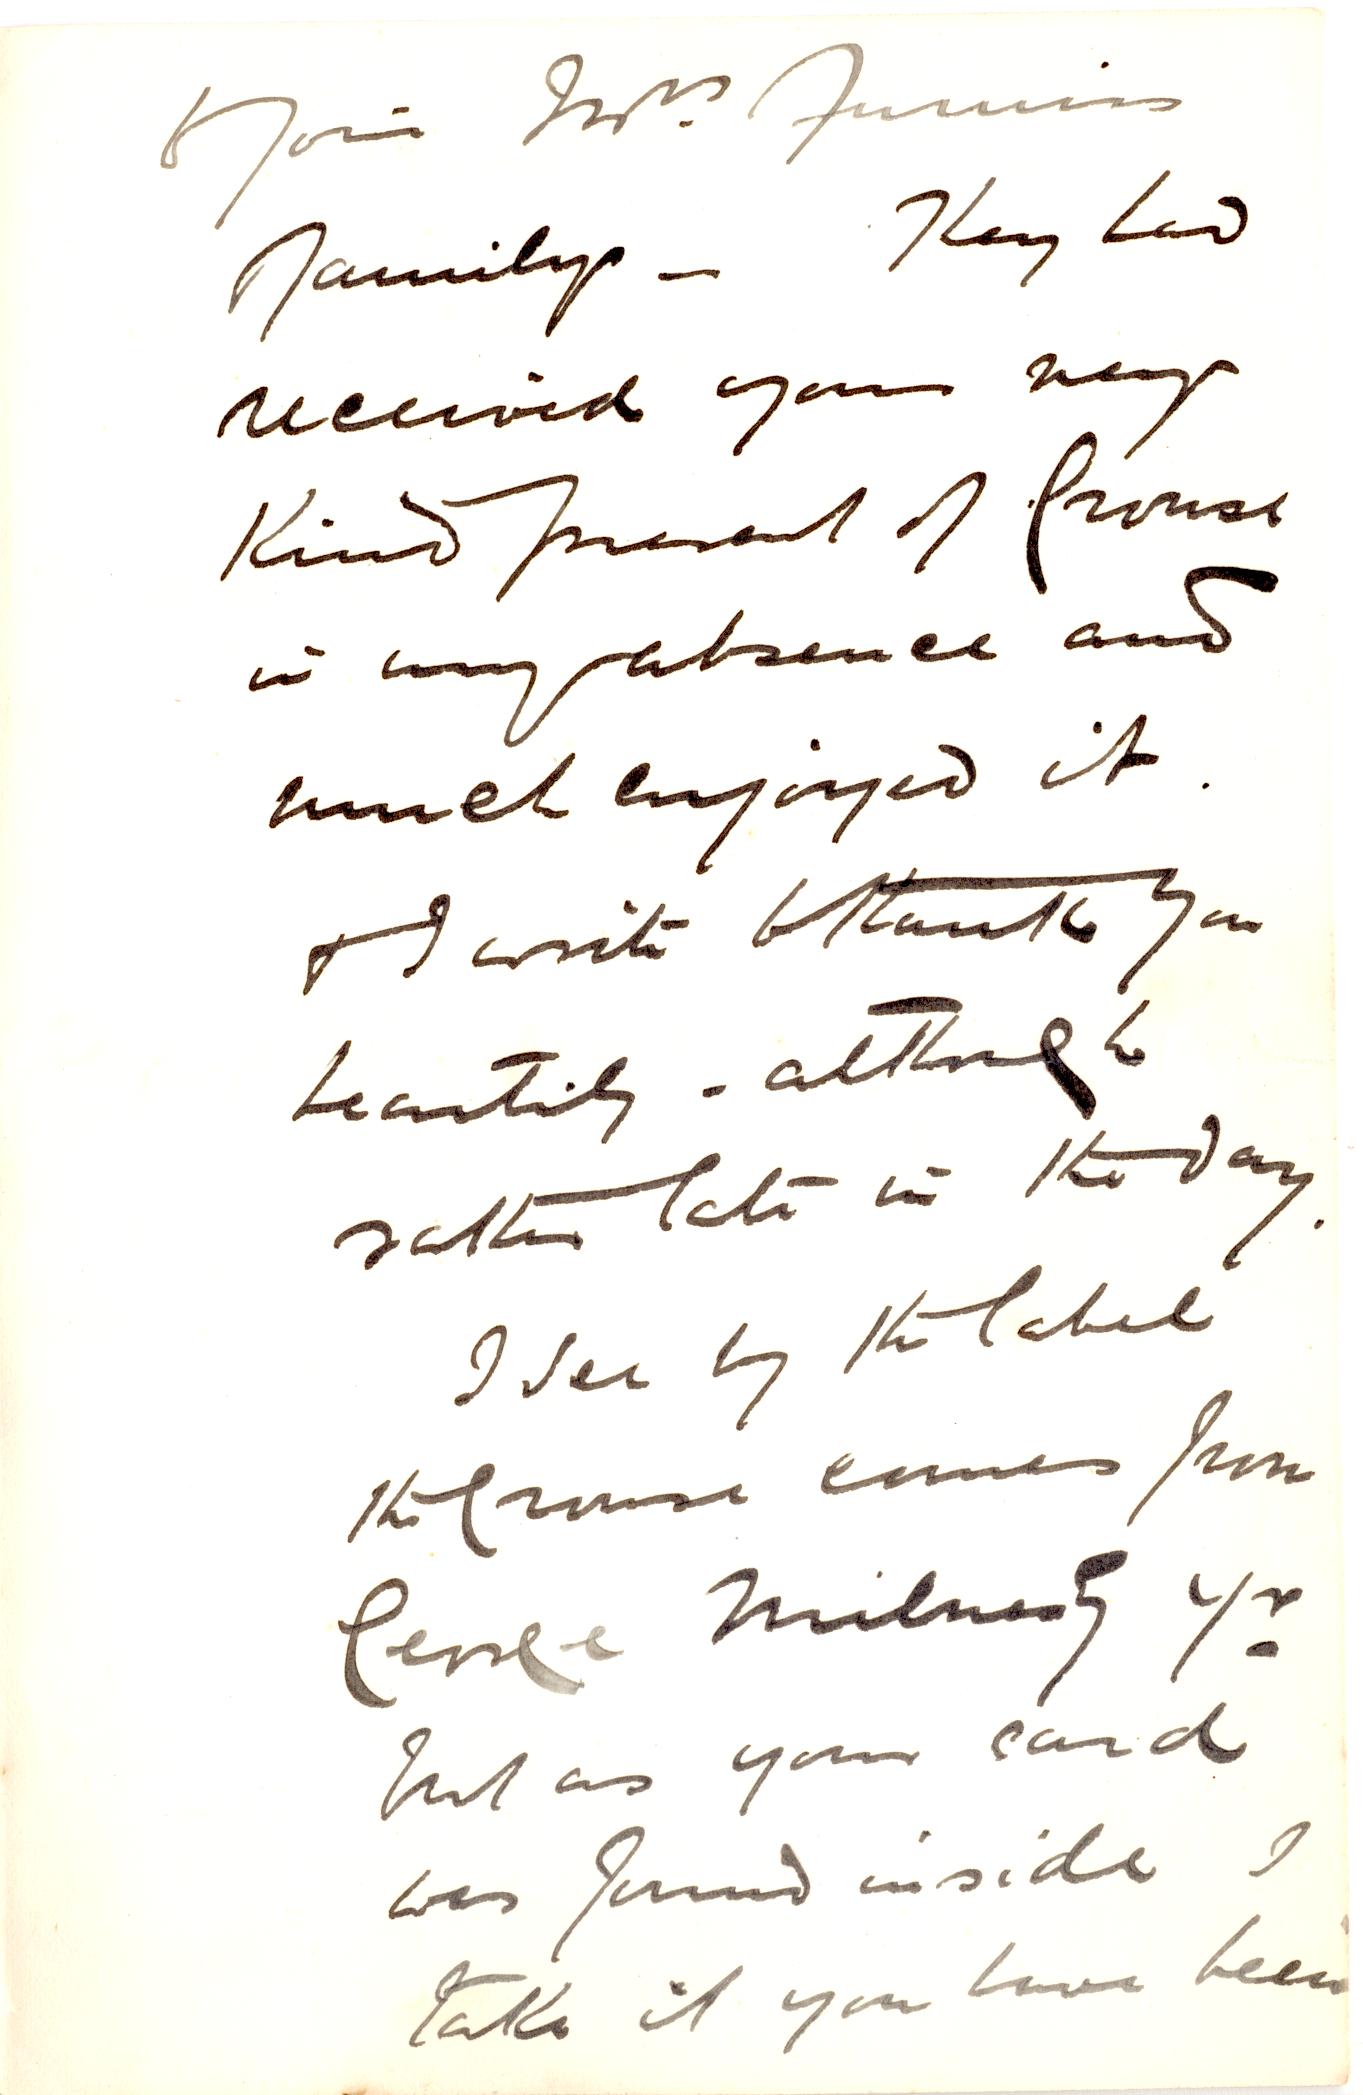 to join Mrs. Furniss
family – They had
received your very
kind present of Grouse
in my absence and
much enjoyed it.
& I write to thank you
heartily – although
rather late in the day.
I see by the label
the Grouse comes from
George Milner Jr
but as your card
was found inside I
take it you have been